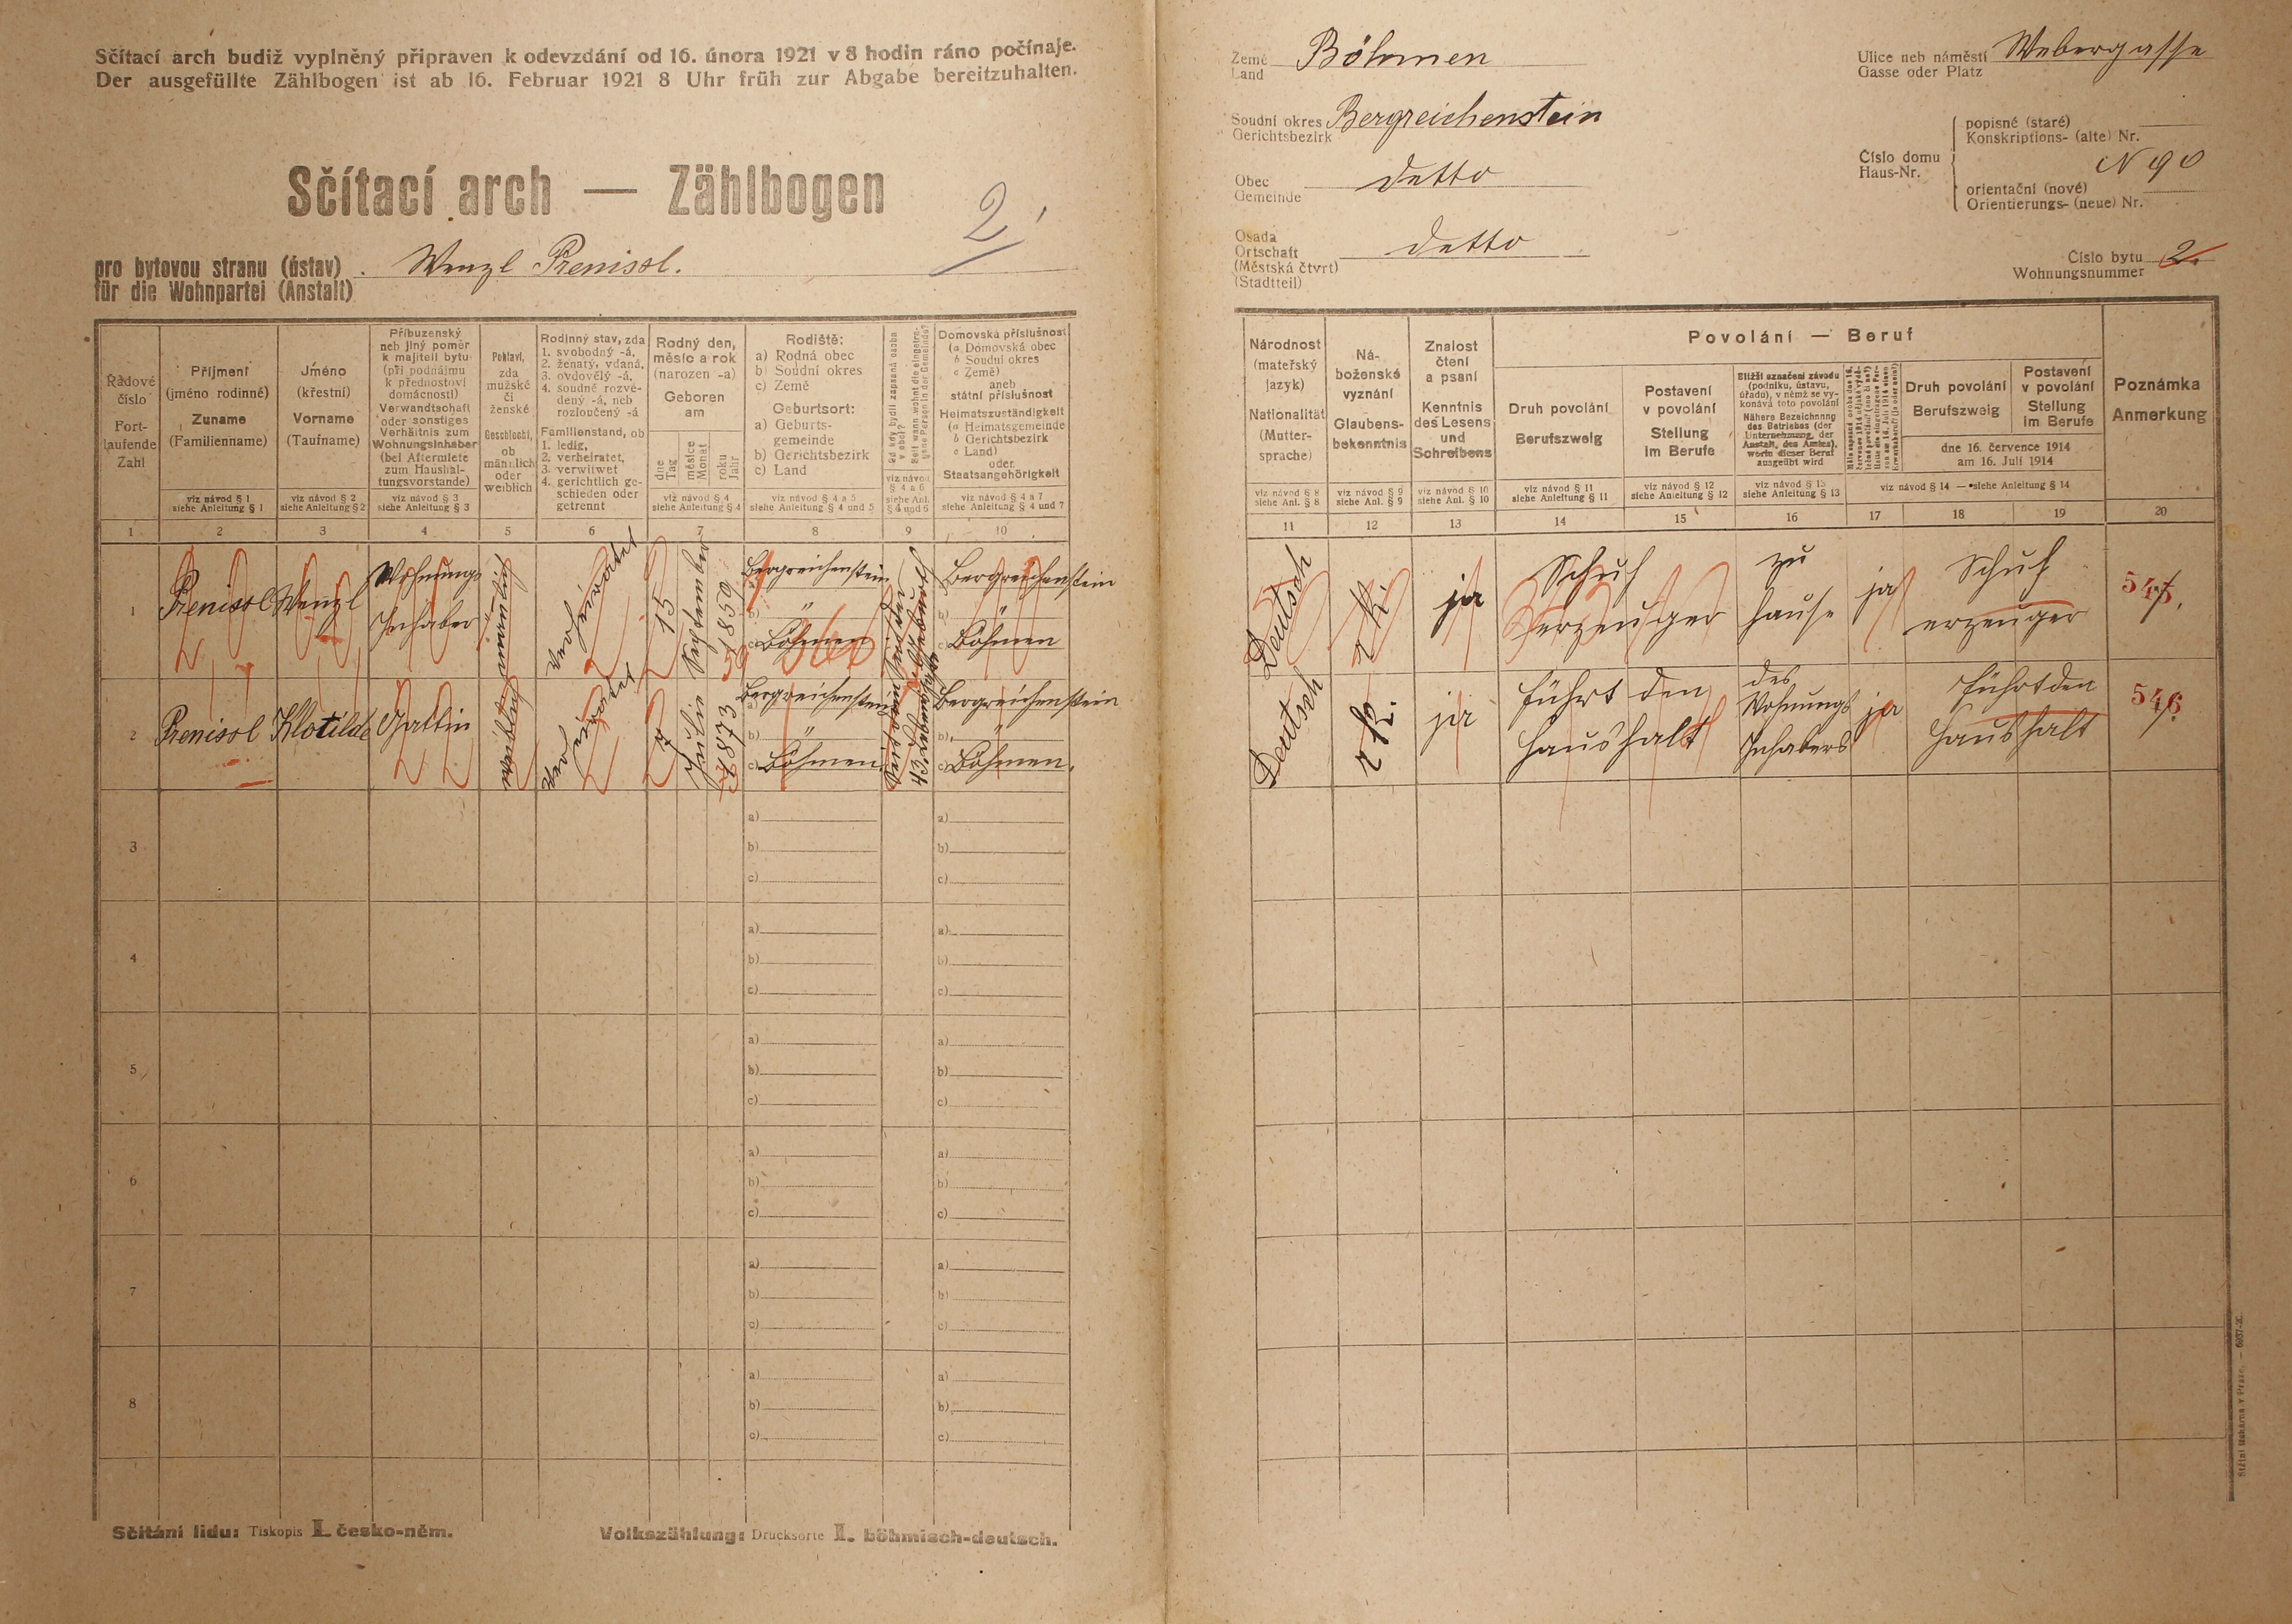 Sčítací arch budiž vyplněný připraven k odevzdání od 16. února 1921 v 8 hodin ráno počínaje.
Der ausgefüllte Zählbogen ist ab 16. Februar 1921 8 Uhr früh zur Abgabe bereitzuhalten.
Sčítací arch — Zählbogen
2
pro bytovou stranu (ústav)
für die Wohnpartei (Anstalt)
Wenzl Prenissl.
Země
Land
Böhmen
Soudní okres
Gerichtsbezirk
Bergreichenstein
Obec
Gemeinde
detto
Osada
Ortschaft
(Městská čtvrť)
(Stadtteil)
detto
Ulice neb náměstí
Gasse oder Platz
Webergasse
Číslo domu
Haus-Nr.
popisné (staré)
Konskriptions- (alte) Nr.
N 90
orientační (nové)
Orientierungs- (neue) Nr.
Číslo bytu
Wohnungsnummer
2.
Řadové číslo
Fort-laufende Zahl
1
Příjmení
(jméno rodinné)
Zuname
(Familienname)
viz návod § 1
siehe Anleitung § 1
2
Jméno
(křestní)
Vorname
(Taufname)
viz návod § 2
siehe Anleitung § 2
3
Příbuzenský
neb jiný poměr
k majiteli bytu
(při podnájmu
k přednostovi
domácnosti)
Verwandtschaft
oder sonstiges
Verhältnis zum
Wohnungsinhaber
(bei Aftermiete
zum Haushal-
tungsvorstande)
viz návod § 3
siehe Anleitung § 3
4
Pohlaví,
zda
mužské
či
ženské
Geschlecht,
ob
männlich
oder
weiblich
5
Rodinný stav, zda
1. svobodný -á,
2. ženatý, vdaná,
3. ovdovělý -á,
4. soudně rozve-
dený -á, neb
rozloučený -á
Familienstand, ob
1. ledig,
2. verheiratet,
3. verwitwet
4. gerichtlich ge-
schieden oder
getrennt
6
Rodný den,
měsíc a rok
(narozen -a)
Geboren
am
dne
Tag
měsíce
Monat
roku
Jahr
viz návod § 4
siehe Anleitung § 4
7
Rodiště:
a) Rodná obec
b) Soudní okres
c) Země
Geburtsort:
a) Geburts-
gemeinde
b) Gerichtsbezirk
c) Land
viz návod § 4 a 5
siehe Anleitung § 4 und 5
8
Od kdy bydlí zapsaná osoba
v obci?
Seit wann wohnt die eingetra-
gene Person in der Gemeinde?
viz návod
§ 4 a 6
siehe Anl.
§ 4 und 6
9
Domovská příslušnost
(a Domovská obec
b Soudní okres
c Země)
aneb
státní příslušnost
Heimatszuständigkeit
(a Heimatsgemeinde
b Gerichtsbezirk
c Land)
oder
Staatsangehörigkeit
viz návod § 4 a 7
siehe Anleitung § 4 und 7
10
Národnost
(mateřský
jazyk)
Nationalität
(Mutter-
sprache)
viz návod § 8
siehe Anl. § 8
11
Ná-
boženské
vyznání
Glaubens-
bekenntnis
viz návod § 9
siehe Anl. § 9
12
Znalost
čtení
a psaní
Kenntnis
des Lesens
und
Schreibens
viz návod § 10
siehe Anl. § 10
13
Povolání — Beruf
Druh povolání
Berufszweig
viz návod § 11
siehe Anleitung § 11
14
Postavení
v povolání
Stellung
im Berufe
viz návod § 12
siehe Anleitung § 12
15
Bližší označení závodu
(podniku, ústavu,
úřadu), v němž se vy-
konává toto povolání
Nähere Bezeichnung
des Betriebes (der
Unternehmung, der
Anstalt, des Amtes),
worin dieser Beruf
ausgeübt wird
viz návod § 13
siehe Anleitung § 13
16
17
Druh povolání
Berufszweig
Postavení
v povolání
Stellung
im Berufe
dne 16. července 1914
am 16. Juli 1914
viz návod § 14 — siehe Anleitung § 14
18
19
Poznámka
Anmerkung
20
1
Prenissl
Wenzl
Wohnungs
Inhaber
verheiratet
15
September
1850
Bergreichenstein
b) "
c) Böhmen
Bergreichenstein
b) "
c) Böhmen
Deutsch
r. k.
ja
Schuh
erzeuger
zu
hause
ja
Schuh
erzeuger
545.
2
Prenissl
Klotilde
Gattin
verheiratet
Juli
1873
Bergreichenstein
b) "
c) Böhmen
Bergreichenstein
b) "
c) Böhmen.
Deutsch
r. k.
ja
führt den
Haushalt
des
Wohnungs
Inhabers
ja
führt den
Haushalt
546
3
a)
b)
c)
a)
b)
c)
4
a)
b)
c)
a)
b)
c)
5
a)
b)
c)
a)
b)
c)
6
a)
b)
c)
a)
b)
c)
7
a)
b)
c)
a)
b)
c)
8
a)
b)
c)
a)
b)
c)
Sčítání lidu: Tiskopis I. česko-něm.
Volkszählung: Drucksorte I. böhmisch-deutsch.